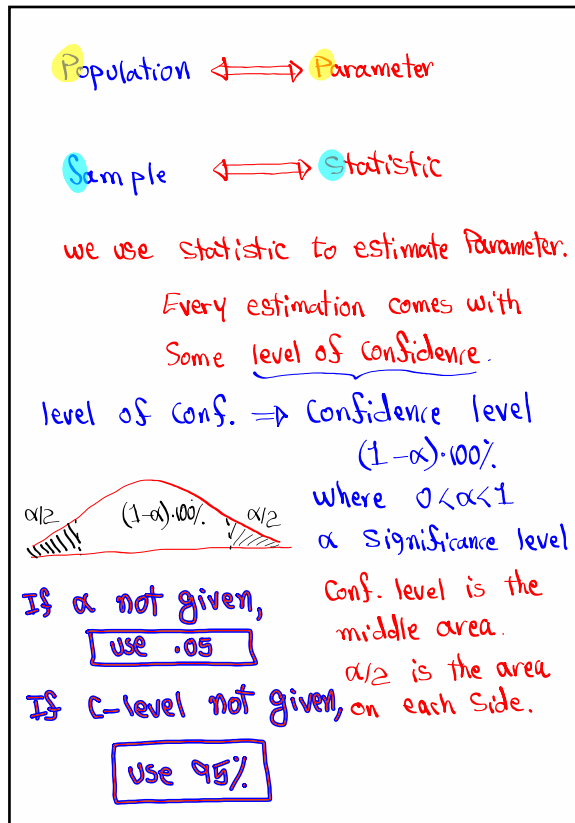 Population ⟺ Parameter
Sample ⟺ Statistic
we use statistic to estimate Parameter.
Every estimation comes with
Some level of confidence.
level of conf. ⇒ Confidence level
(1-α)·100%
where 0<α<1
α Significance level
α/2 (1-α)·100% α/2
Conf. level is the
middle area.
α/2 is the area
on each Side.
If α not given,
use .05
If C-level not given,
use 95%